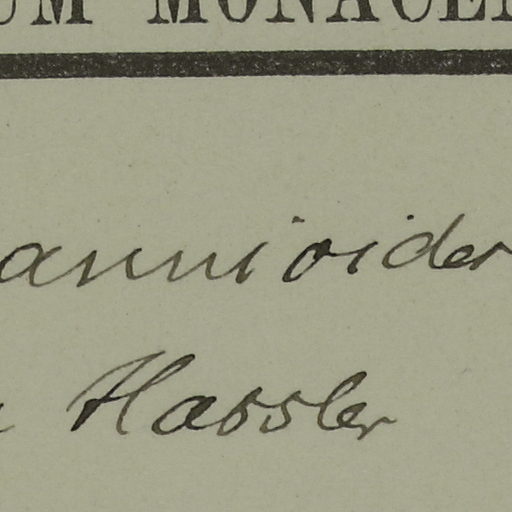 UM MONACE
annioider
Hassler